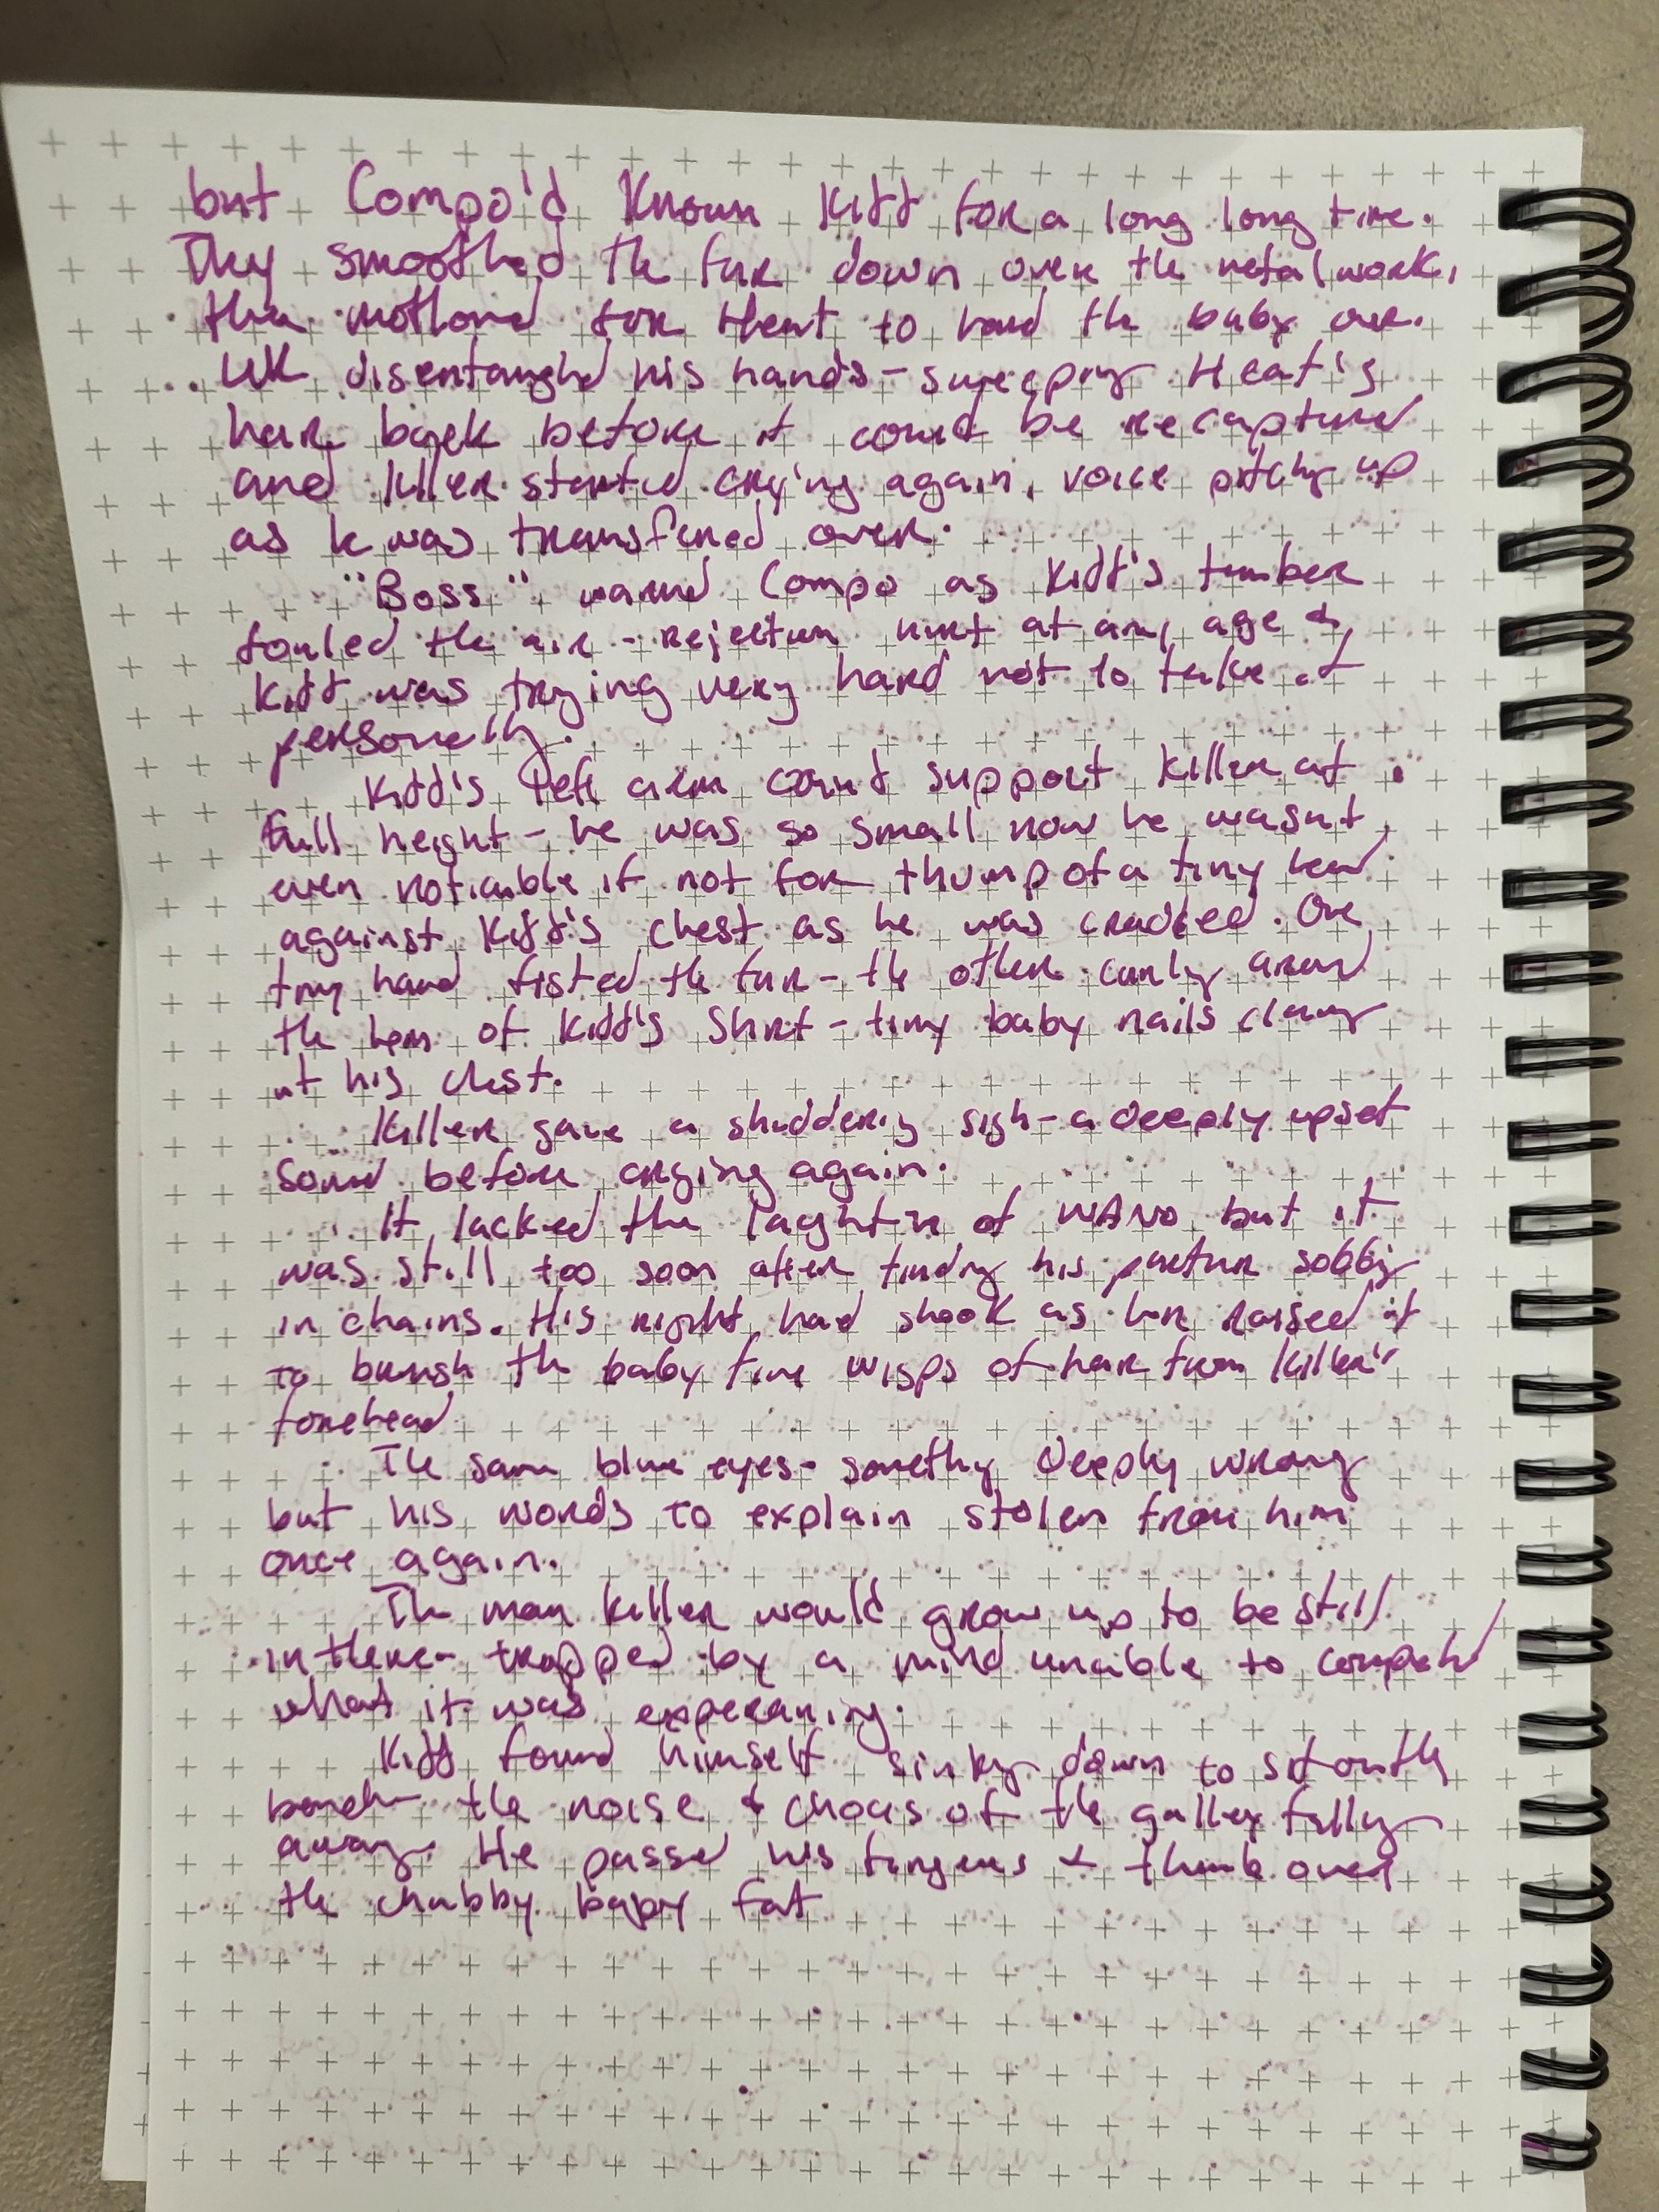 but Compo'd Known Kidd for a long long time.
They smoothed the fur down over the metal work,
then motioned for Heat to hand the baby over.
UK disentangled his hands - sweeping Heat's
hair back before it could be recaptured
and Killer started crying again, voice pitching up
as he was transfered over.
"Boss" warned Compo as Kidd's timber
fouled the air - rejection hurt at any age &
Kidd was trying very hard not to take it
personally.
Kidd's left arm could support Killer at
full height - he was so small now he wasnt
even noticable if not for thump of a tiny head
against Kidd's chest as he was cradled. One
tiny hand fisted the fur - the other curling around
the hem of Kidd's shirt - tiny baby nails clawing
at his chest.
Killer gave a shuddering sigh - a deeply upset
sound before crying again.
It lacked the laghter of WANO but it
was still too soon after finding his partner sobbing
in chains. His right hand shook as he raised it
to brush the baby fine wisps of hair from Killer's
forehead
The same blue eyes - something deeply wrong
but his words to explain stolen from him
once again.
The man Killer would grow up to be still
in there - trapped by a mind unable to
what it was
Kidd found himself sinking down to sit on the
bench the noise & chaos of the galley falling
away. He passed his fingers & thumb over
the chubby baby fat